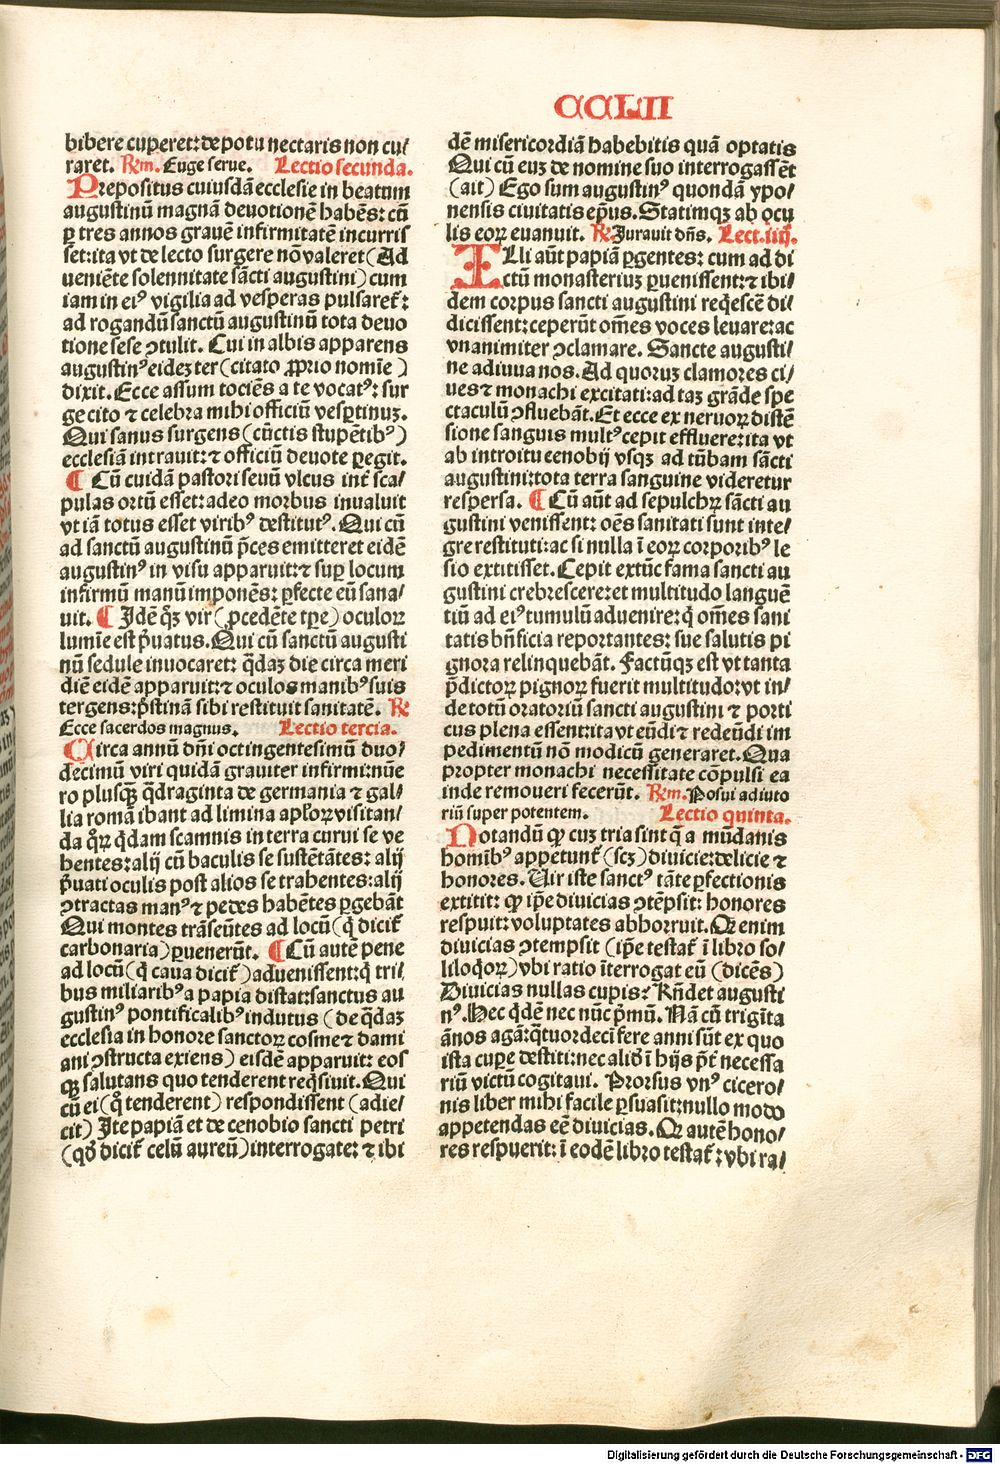 CCLII
bibere cuperet: de potu nectaris non cu/
raret. Rm. Euge serue. Lectio secunda.
Prepositus cuiusdā ecclesie in beatum
augustinū magnā deuotionē habēs: cū
ꝑ tres annos grauē infirmitatē incurris
set: ita vt de lecto surgere nō valeret (Ad
ueniēte solennitate sācti augustini) cum
iam in eiꝰ vigilia ad vesperas pulsaret᷑:
ad rogandū sanctū augustinū tota deuo
tione sese ꝯtulit. Cui in albis apparens
augustinꝰ eidez ter (citato ꝓprio nomīe)
dixit. Ecce assum tociēs a te vocatꝰ: sur
ge cito ⁊ celebra mihi officiū vesꝑtinuz.
Qui sanus surgens (cūctis stupētibꝰ)
ecclesiā intrauit: ⁊ officiū deuote ꝑegit.
¶ Cū cuidā pastori seuū vlcus int᷑ sca/
pulas ortū esset: adeo morbus inualuit
vt iā totus esset viribꝰ destitutꝰ. Qui cū
ad sanctū augustinū p̄ces emitteret eidē
augustinꝰ in visu apparuit: ⁊ suꝑ locum
infirmū manū imponēs: ꝑfecte eū sana/
uit. ¶ Idē qͦꝫ vir (p̄cedēte tꝑe) oculoꝝ
lumīe est p̄uatus. Qui cū sanctū augusti
nū sedule inuocaret: q̄daꝫ die circa meri
diē eidē apparuit: ⁊ oculos manibꝰ suis
tergens: p̄stinā sibi restituit sanitatē. R
Ecce sacerdos magnus. Lectio tercia.
Circa annū dn̄i octingentesimū duo/
decimū viri quidā grauiter infirmi: nūe
ro plusqꝫ q̄draginta de germania ⁊ gal/
lia romā ibant ad limina apl̓oꝝ visitan/
da qͦꝝ q̄dam scamnis in terra curui se ve
hentes: alij cū baculis se sustētātes: alij
p̄uati oculis post alios se trahentes: alij
ꝯtractas manꝰ ⁊ pedes habētes ꝑgebāt
Qui montes trāseūtes ad locū (q̇ dicit᷑
carbonaria) ꝑuenerūt. ¶ Cū autē pene
ad locū (q̇ caua dicit᷑) aduenissent: q̇ tri/
bus miliaribꝰ a papia distat: sanctus au
gustinꝰ pontificalibꝰ indutus (de q̄daꝫ
ecclesia in honore sanctoꝝ cosme ⁊ dami
ani ꝯstructa exiens) eisdē apparuit: eos
qꝫ salutans quo tenderent reqͥsiuit. Qui
cū ei (qͦ tenderent) respondissent (adie/
cit) Ite papiā et de cenobio sancti petri
(qd̓ dicit᷑ celū aureū) interrogate: ⁊ ibi
dē misericordiā habebitis quā optatis
Qui cū euꝫ de nomine suo interrogassēt
(ait) Ego sum augustinꝰ quondā ypo/
nensis ciuitatis ep̄us. Statimqꝫ ab ocu
lis eoꝝ euanuit. R. Jurauit dn̄s. Lect. iiij.
Illi aūt papiā ꝑgentes: cum ad di
ctū monasteriuꝫ ꝑuenissent: ⁊ ibi/
dem corpus sancti augustini reqͥescē di/
dicissent: ceperūt om̄es voces leuare: ac
vnanimiter ꝯclamare. Sancte augusti/
ne adiuua nos. Ad quoruꝫ clamores ci/
ues ⁊ monachi excitati: ad taꝫ grāde spe
ctaculū ꝯfluebāt. Et ecce ex neruoꝝ distē
sione sanguis multꝰ cepit effluere: ita vt
ab introitu cenobij vsqꝫ ad tūbam sācti
augustini: tota terra sanguine videretur
respersa. ¶ Cū aūt ad sepulchꝝ sācti au
gustini venissent: oēs sanitati sunt inte/
gre restituti: ac si nulla ī eoꝝ corporibꝰ le
sio extitisset. Cepit extūc fama sancti au
gustini crebrescere: et multitudo languē
tiū ad eiꝰ tumulū aduenire: q̇ om̄es sani
tatis bn̄ficia reportantes: sue salutis pi
gnora relinquebāt. Factūqꝫ est vt tanta
p̄dictoꝝ pignoꝝ fuerit multitudo: vt in/
de totū oratoriū sancti augustini ⁊ porti
cus plena essent: ita vt eūdi ⁊ redeūdi im
pedimentū nō modicū generaret. Qua
propter monachi necessitate cōpulsi ea
inde remoueri fecerūt. Rm. Posui adiuto
riū super potentem. Lectio quinta.
Notandū ꝙ cuꝫ tria sint q̄ a mūdanis
homībꝰ appetunt᷑ (scꝫ) diuicie: delicie ⁊
honores. Vir iste sanctꝰ tāte ꝑfectionis
extitit: ꝙ ip̄e diuicias ꝯtēpsit: honores
respuit: voluptates abhorruit. Qꝛ enim
diuicias ꝯtempsit (ip̄e testat᷑ ī libro so/
liloqͦꝝ) vbi ratio īterrogat eū (dicēs)
Diuicias nullas cupis? Rn̄det augusti
nꝰ. Hec qͥdē nec nūc pͥmū. Nā cū trigīta
ānos agā: q̄tuordecī fere anni sūt ex quo
ista cuꝑe destiti: nec aliqd̓ ī hijs p̄t᷑ necessa
riū victū cogitaui. Prorsus vnꝰ cicero/
nis liber mihi facile ꝑsuasit: nullo modo
appetendas eē diuicias. Qꝛ autē hono/
res respuerit: ī eodē libro testat᷑: vbi ra/
Digitalisierung gefördert durch die Deutsche Forschungsgemeinschaft - DFG